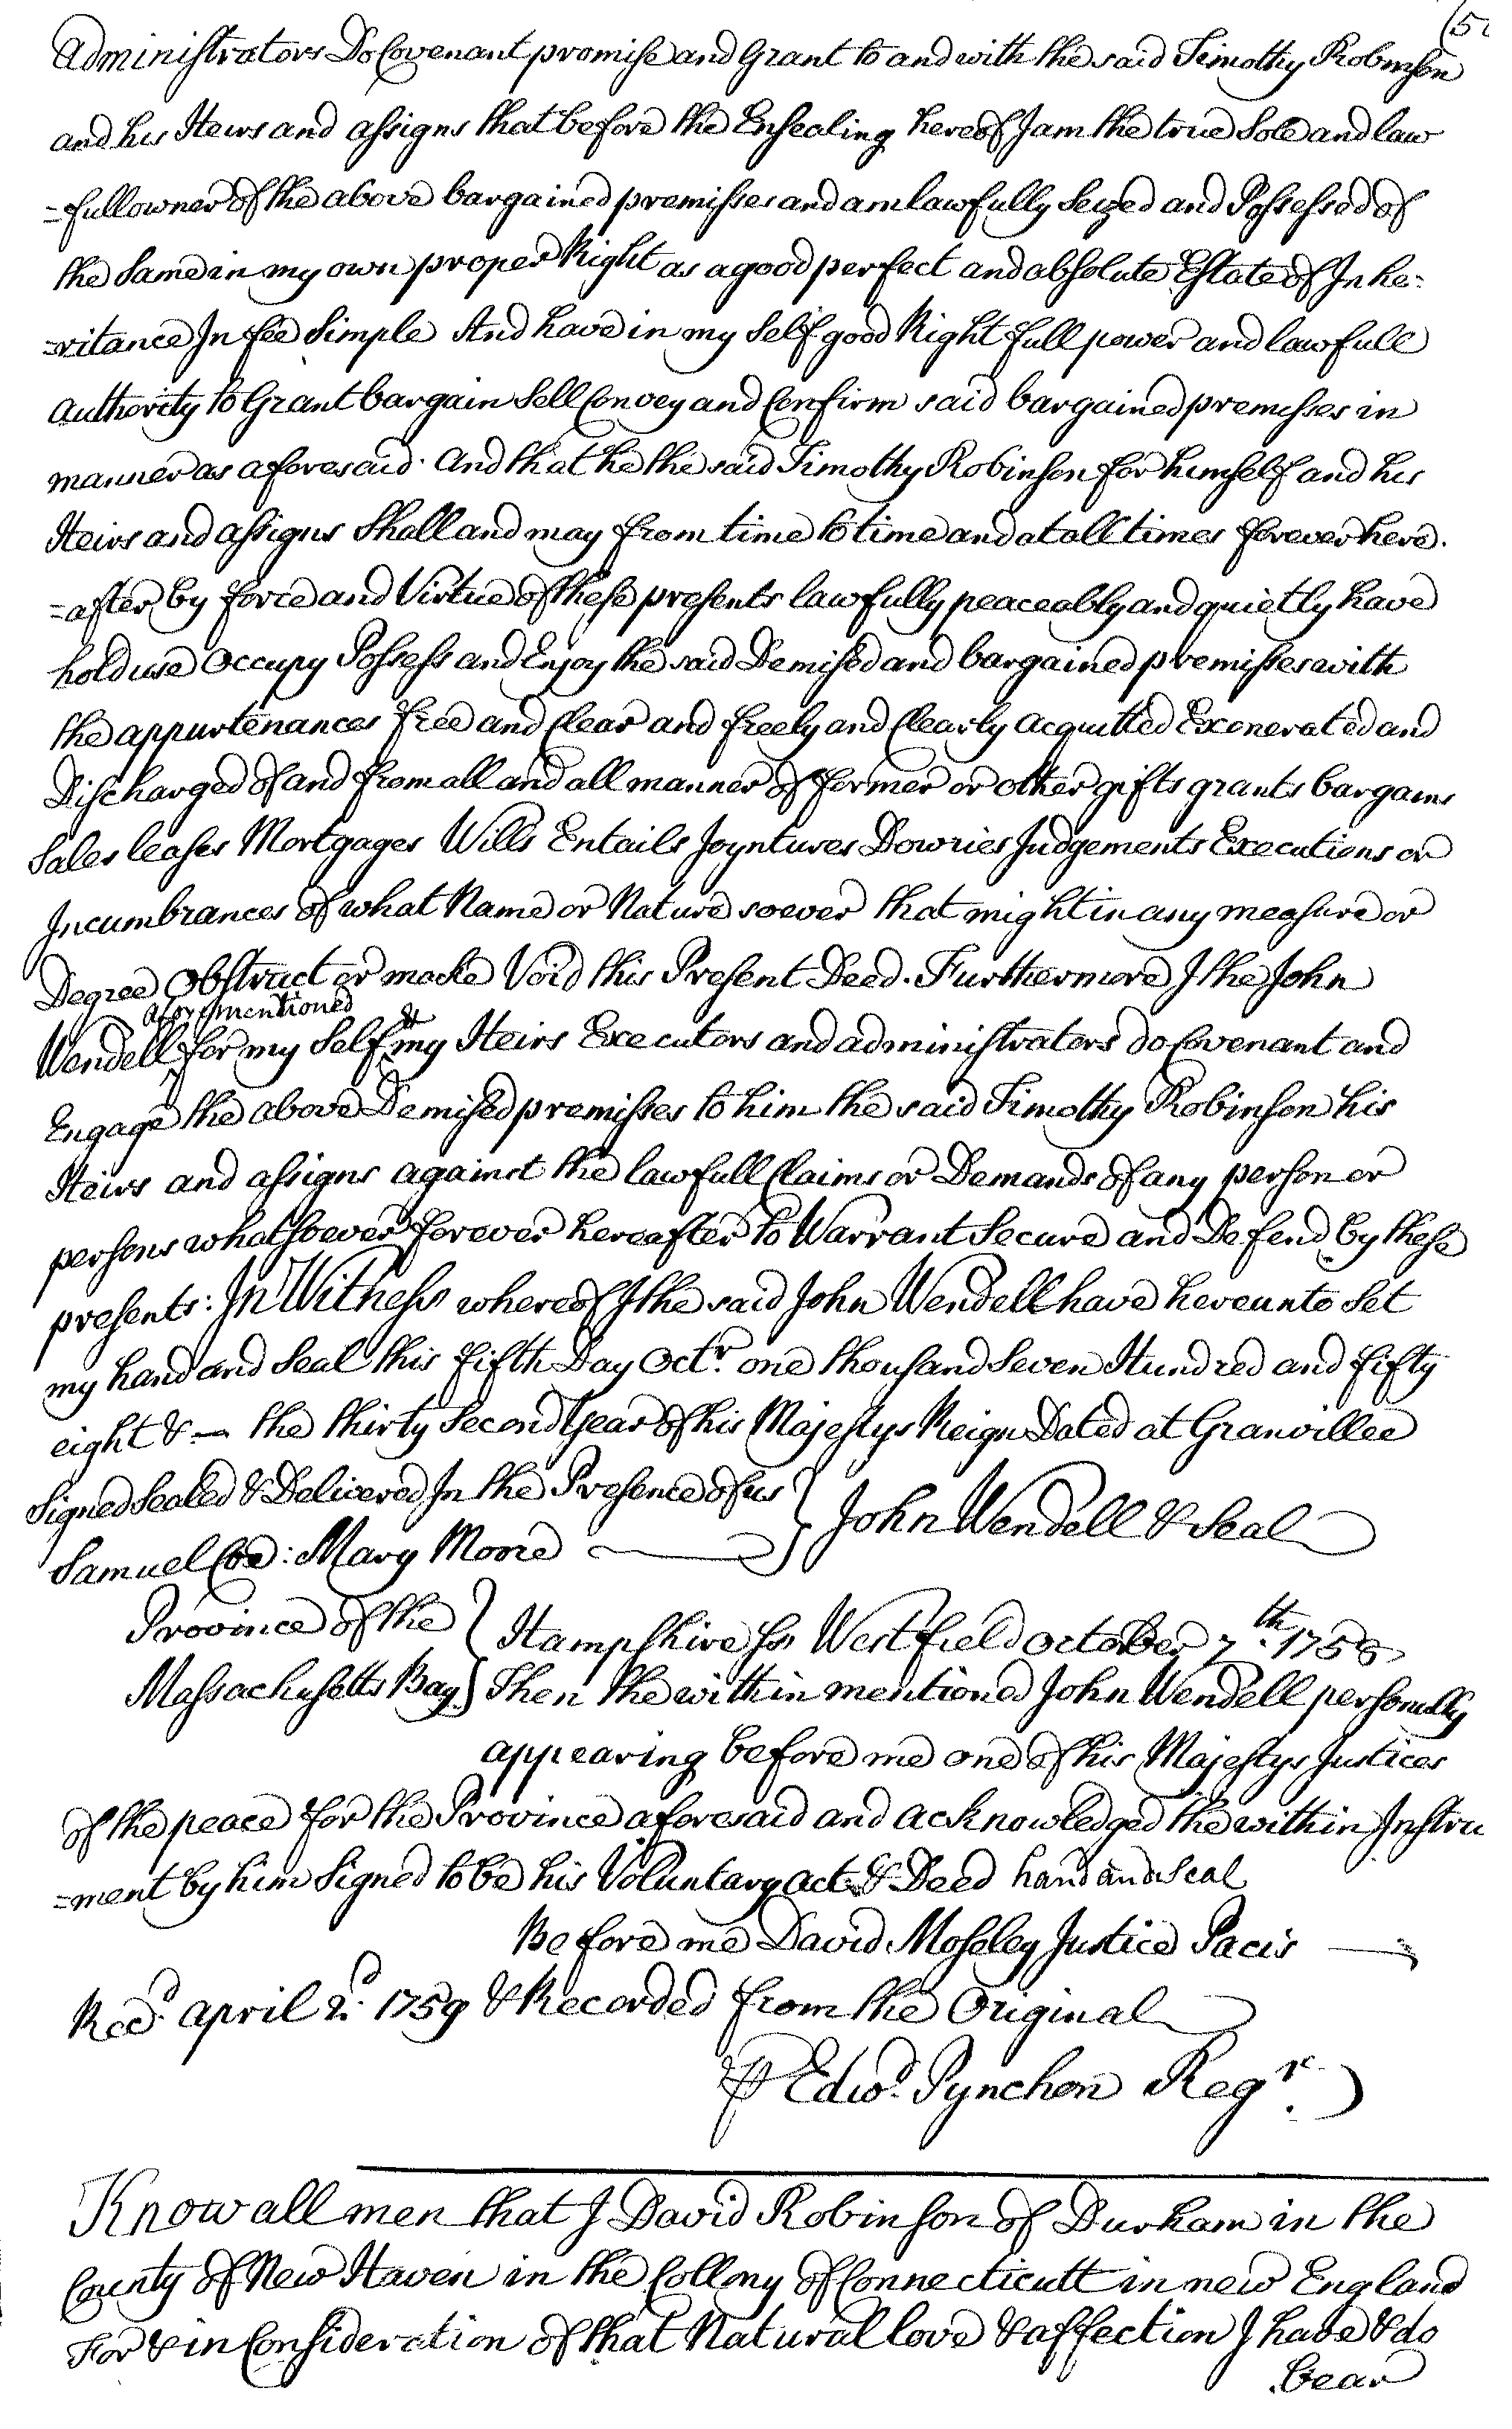 (5
Administrators Do Covenant promise and Grant to and with the said Timothy Robinson
and his Heirs and assigns that before the Ensealing hereof I am the true Sole and law
=full owner of the above bargained premisses and am lawfully Seized and Possessed of
the Same in my own proper Right as a good perfect and absolute Estate of Inhe=
=ritance In fee Simple And have in my Self good Right full power and lawfull
Authority to Grant bargain Sell Convey and Confirm said bargained premisses in
manner as aforesaid. And that he the said Timothy Robinson for himself and his
Heirs and assigns Shall and may from time to time and at all times forever here.
=after by force and Virtue of these presents lawfully peaceably and quietly have
hold use Occupy Possess and Enjoy the said Demised and bargained premisses with
the appurtenances free and Clear and freely and Clearly acquitted Exonerated and
Discharged of and from all and all manner of former or other gifts grants bargains
Sales leases Mortgages Wills Entails Joyntures Dowries Judgements Executions or
Incumbrances of what Name or Nature soever that might in any measure or
Degree Obstruct or make Void this Present Deed. Furthermore I the John
aforementioned &
Wendell for my Self my Heirs Executors and administrators do Covenant and
Engage the above Demised premisses to him the said Timothy Robinson his
Heirs and assigns against the lawfull Claims or Demands of any person or
persons whatsoever forever hereafter to Warrant Secure and Defend by these
presents: In Witness whereof I the said John Wendell have hereunto Set
my hand and Seal this fifth Day Octr. one thousand Seven Hundred and fifty
eight & — the thirty Second Year of his Majestys Reign Dated at Granvillee
Signed Sealed & Delivered In the Presence of us } John Wendell & Seal
Samuel Coe: Mary Moore
Province of the } Hampshire ss Westfield October 7th. 1758
Massachusetts Bay } Then the within mentioned John Wendell personally
appearing before me one of his Majestys Justices
of the peace for the Province aforesaid and acknowledged the within Instru
=ment by him Signed to be his Voluntary act & Deed hand and Seal
Before me David Moseley Justice Pacis
Recd. april 2d. 1759 & Recorded from the Original
⅌ Edwd. Pynchon Regr.
Know all men that I David Robinson of Durham in the
County of New Haven in the Collony of Connecticutt in new England
For & in Consideration of that Natural love & affection I have & do
bear